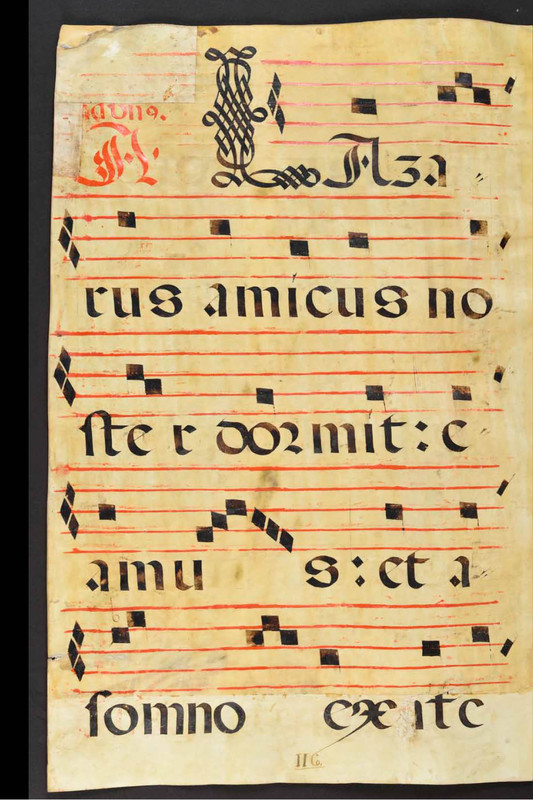 LAza
rus amicus no
ster dormit: e
amus: et a
somno exite